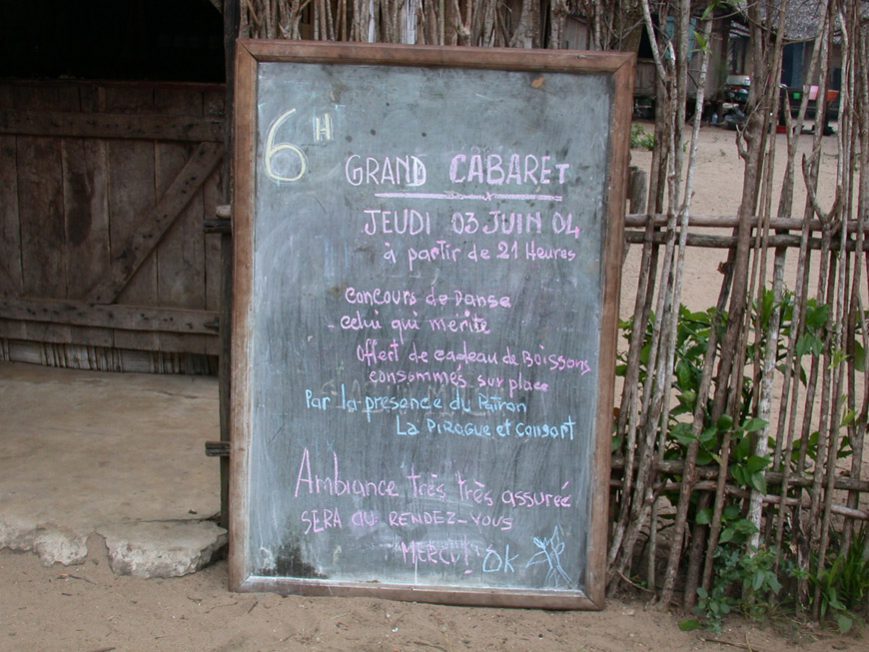 6H
GRAND CABARET
JEUDI 03 JUIN 04
à partir de 21 Heures
concours de Danse
celui qui mérite
offert de cadeau de Boissons
consommés sur place
Par la presence du Patron
La PIROGUE et consort
Ambiance très très assurée
SERA au RENDEZ-VOUS
MERCI! Ok